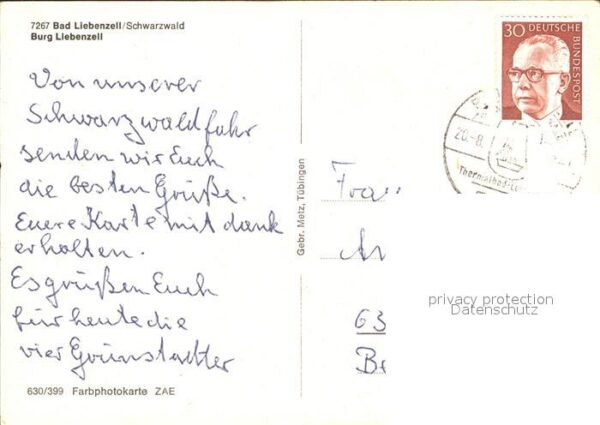 7267 Bad Liebenzell/Schwarzwald
Burg Liebenzell
Von unserer
Schwarzwaldfahr
senden wir Euch
die besten Grüße.
Euere Karte mit dank
erhalten.
Es grüßen Euch
für heute die
vier Grünstadter
630/399 Farbphotokarte ZAE
Gebr. Metz, Tübingen
30 DEUTSCHE BUNDESPOST
20.-8.
Frau
63
privacy protection
Datenschutz